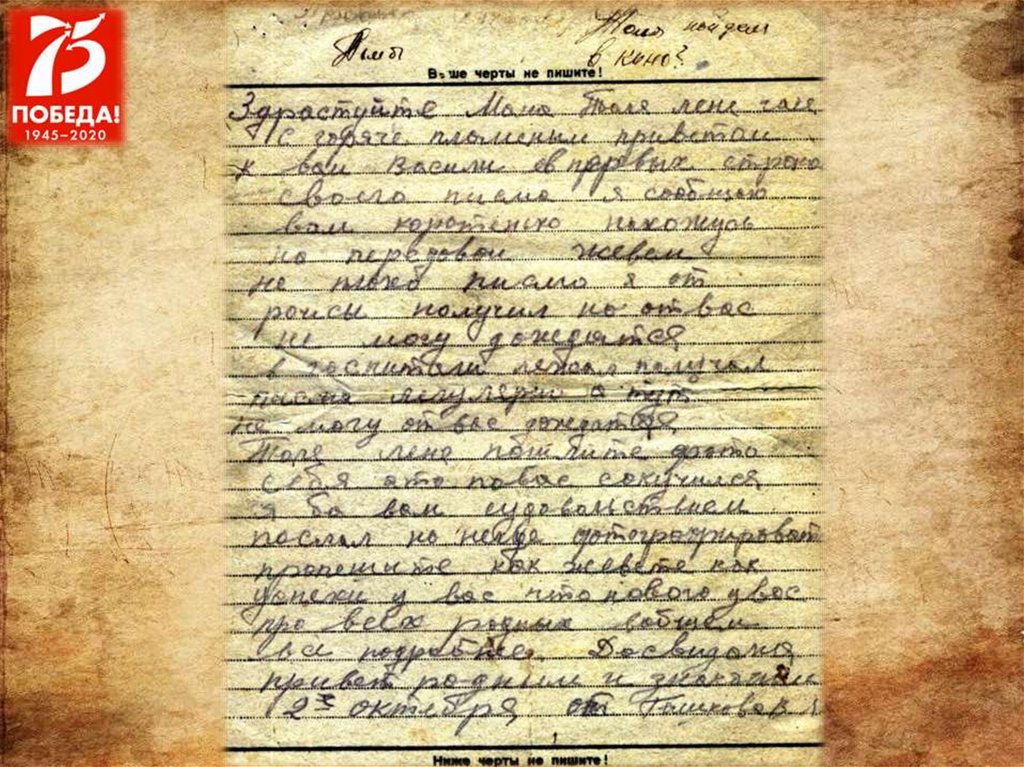 75
ПОБЕДА!
1945–2020
Толя пойдем
в кино?
Выше черты не пишите!
Здраствуйте Мана Толя лене
с горяче пламеным приветом
к вам Васили в первых строках
своего писма я сообщаю
вам коротенько нахожусь
на передовой жевем
не плохо писмо я от
раисы получил но от вас
не могу дождатся
в госпитали лежал получал
писма а тут
не могу от вас дождатся
Толя лена пошлите фото
себя а то по вас соскучился
я бы вам судовольствием
послал но негде фотографироват
пропешите как жевете как
успехи у вас что нового у вас
про всех родных вобщем
всё подробне. Досвидана
привет родным и знакомым
2 октебря от Пышкова В
Ниже черты не пишите!